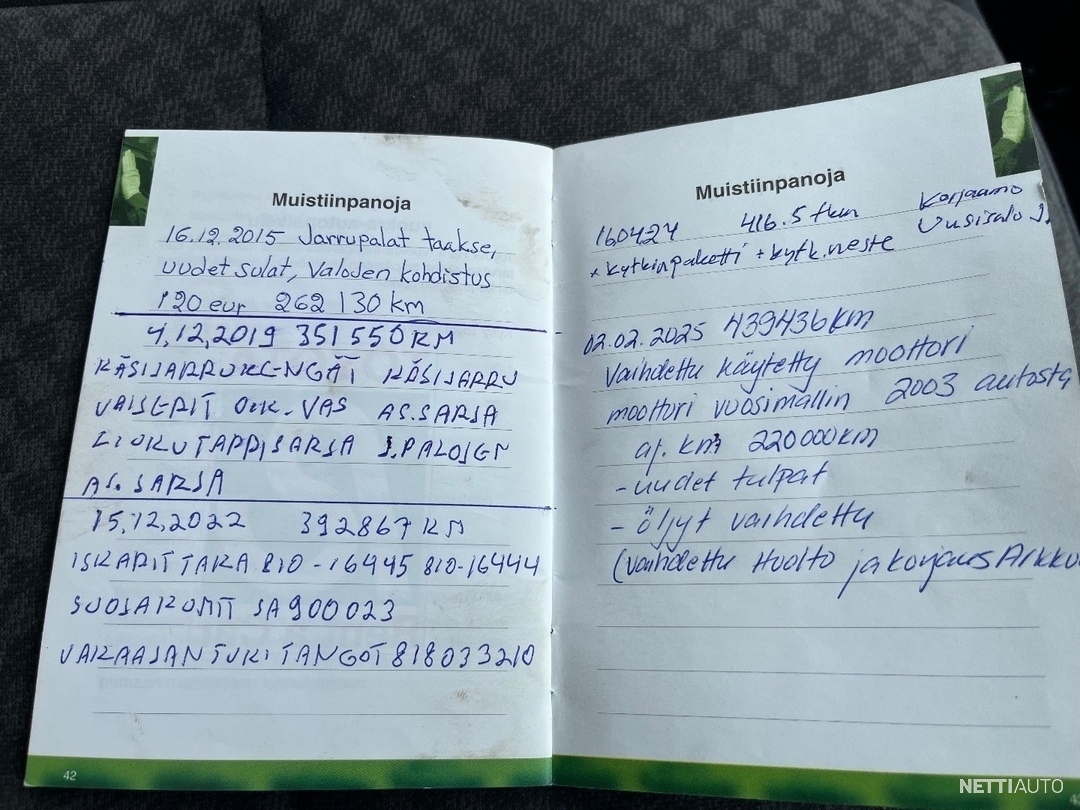 Muistiinpanoja
16.12.2015 Jarrupalat taakse,
uudet sulat, Valojen kohdistus
120 eur 262 130 km
4,12,2019 351 550 KM
KÄSIJARRUKENGÄT KÄSIJARRU
VAIJERIT OIK-VAS AS.SARJA
LIUKUTAPPISARJA J.PALOJEN
AS. SARJA
15,12,2022 392867 KM
ISKARIT TAKA 810-16445 810-16444
SUOJAKUMIT SA900023
VAKAAJAN TUKITANGOT 818033210
42
Muistiinpanoja
160424 416.5 tkm Korjaamo
+ kytkinpaketti + kytk.neste Uusisalo
02.02.2025 439436km
Vaihdettu käytetty moottori
moottori vuosimallin 2003 autosta
aj. km 220000km
- uudet tulpat
- öljyt vaihdettu
(vaihdettu Huolto ja korjaus Arkku
NETTIAUTO